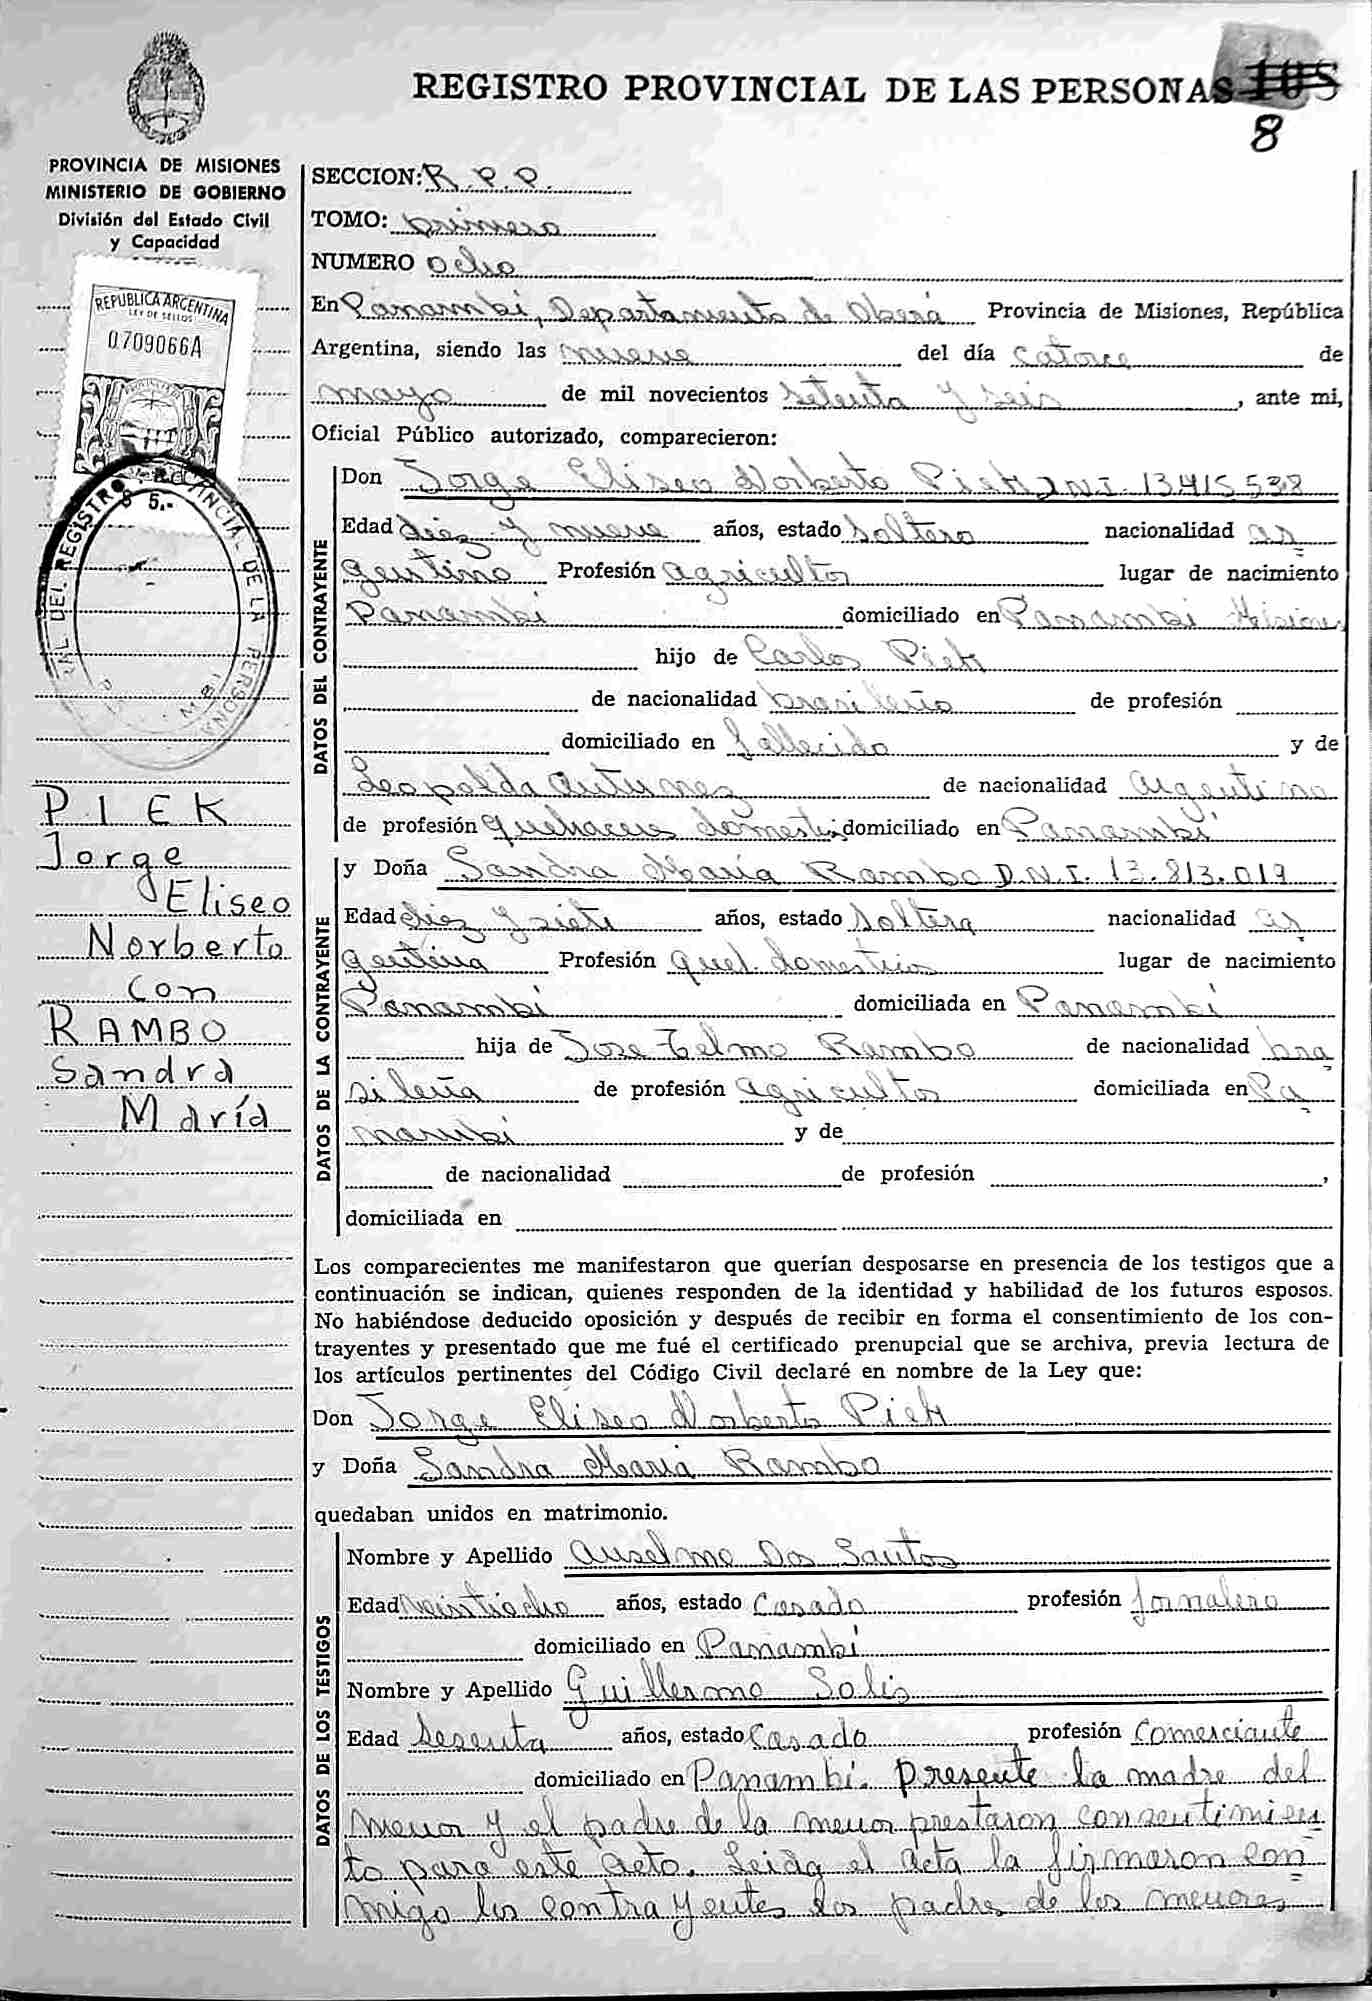 REGISTRO PROVINCIAL DE LAS PERSONAS 105
8
PROVINCIA DE MISIONES
MINISTERIO DE GOBIERNO
División del Estado Civil
y Capacidad
REPUBLICA ARGENTINA
LEY DE SELLOS
0709066A
$ 5.-
PIEK
Jorge
Eliseo
Norberto
con
RAMBO
Sandra
María
SECCION: R.P.P.
TOMO: primero
NUMERO ocho
En Panambí, Departamento de Oberá Provincia de Misiones, República
Argentina, siendo las nueve del día catorce de
mayo de mil novecientos setenta y seis, ante mi,
Oficial Público autorizado, comparecieron:
DATOS DEL CONTRAYENTE
Don Jorge Eliseo Norberto Piek D.N.I. 13.415.538
Edad diez y nueve años, estado soltero nacionalidad ar
gentino Profesión agricultor lugar de nacimiento
Panambí domiciliado en Panambí Misiones
hijo de Carlos Piek
de nacionalidad brasileño de profesión
domiciliado en fallecido y de
Leopolda Antunez de nacionalidad Argentina
de profesión quehaceres domesti. domiciliado en Panambí
DATOS DE LA CONTRAYENTE
y Doña Sandra María Rambo D.N.I. 13.813.019
Edad diez y siete años, estado soltera nacionalidad ar
gentina Profesión queh. domesticos lugar de nacimiento
Panambí domiciliada en Panambí
hija de Jose Telmo Rambo de nacionalidad bra
sileña de profesión agricultor domiciliada en Pa
nambí y de
de nacionalidad de profesión ,
domiciliada en
Los comparecientes me manifestaron que querían desposarse en presencia de los testigos que a
continuación se indican, quienes responden de la identidad y habilidad de los futuros esposos.
No habiéndose deducido oposición y después de recibir en forma el consentimiento de los con-
trayentes y presentado que me fué el certificado prenupcial que se archiva, previa lectura de
los artículos pertinentes del Código Civil declaré en nombre de la Ley que:
Don Jorge Eliseo Norberto Piek
y Doña Sandra Maria Rambo
quedaban unidos en matrimonio.
DATOS DE LOS TESTIGOS
Nombre y Apellido Anselmo Dos Santos
Edad veintiocho años, estado Casado profesión jornalero
domiciliado en Panambí
Nombre y Apellido Guillermo Solis
Edad Sesenta años, estado Casado profesión Comerciante
domiciliado en Panambí. Presente la madre del
menor y el padre de la menor prestaron consentimien
to para este acto. Leida el acta la firmaron con
migo los contrayentes los padres de los menores